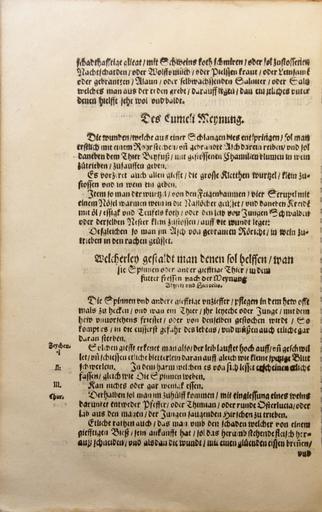 schadthafftige glieat / mit Schweins koth schmiren / oder sol zustossenen
Nachtschatten / oder Wolffsmilch / oder
oder gebrantten / Alaun / oder selbwachssenden Salniter / oder Saltz
welches man aus der erden grebt / darauff legen / dan ein jtliches vnter
denen hielfft sehr wol vnd balde.
Des Eumeli Meynung.
Die wunden / welche aus einer Schlangen bies entspringen / sol man
erstlich mit einem Rhorstechen vñ gebrandte Asch darein reiben / vnd sol
daneben dem Thier Beyfuß / mit gestossenen Chamillen blumen in wein
zutrieben / zusauffen geben.
Es vorzert auch allen giefft / die grosse Kletthen wurtzel / klein zu-
stossen vnd in wein ein geben.
Item so man der wurtzel / von den Feigenbaumen / vier Scrupel mit
einem Nösel warmen wein in die Naslöcher geüst / vnd daneben Kreide
mit öl / essigk vnd Teufels koth / oder den von Jungen Schwalben
oder derselben Nester klein zustossen / auff die wunde leget:
Desgleichen so man jm Asch von gebrantem Röricht / in wein zu-
trieben in den rachen geüsset.
Welcherley gestaldt man denen sol helffen / wan
sie Spinnen oder ander giefftige Thier / in dem
futter fressen nach der Meynung
Absyrti vnd Hieroclis.
Die Spinnen vnd andere giefftige vnziffer / pflegen in dem hew offt
mals zu hecken / vnd wan ein Thier / sie jrgents oder Junge / mit dem
hew vnuorsehens frieset / oder von denselben gestochen wirdt / So
kompt es / in die eusserst gefahr des lebens / vnd müssen auch etliche gar
daran sterben.
Zeychen.
I
Solchen giefft erkent man also / der leib laufft hoch auff vñ geschwil
let / vñ schiessen etliche bletterlein darauff gleich wie kleine spitzige Blut
schwerlein.
II.
In dem harn welchen es von sich lesset erscheinen etliche
fassen / gleich wie Die Spinnen weben.
III.
Kan nichts oder gar wenick essen.
Chur.
Derhalben sol man jm zuhülff kommen / mit eingiessung eines weins
darunter entweder Pfeffer / oder Thimian / oder runde Osterlucia / oder
lab aus den magen / der Jungen saugenden Hirschen zu trieben.
Etliche rathen auch / das man von den schaden welcher von einem
giefftigen Bieß / sein ankunfft hat / sol das herumb stehende fleisch her-
auß schneiden / vnd alsdan die wundt / mit einen glüenden eissen brenen /
vnd